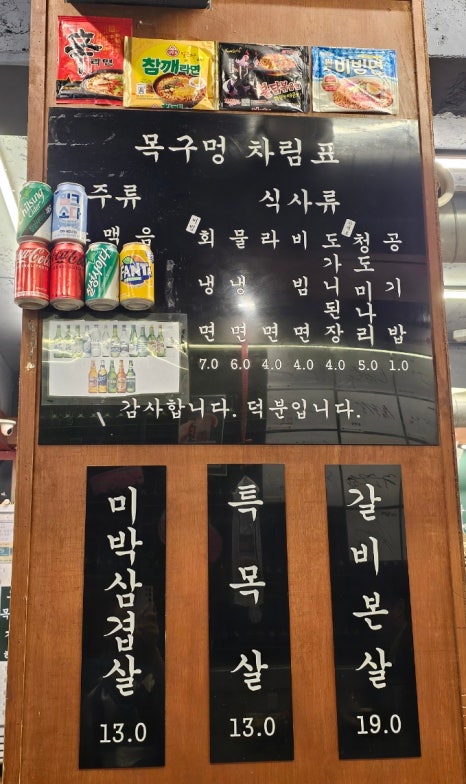 辛
라면
참깨라면
비빔면
목구멍 차림표
주류
식사류
맥 음
회냉면 7.0
물냉면 6.0
라면 4.0
비빔면 4.0
도가니된장 4.0
청도미나리 5.0
공기밥 1.0
Chilsung
Cider
Coca-Cola
Coca-Cola
칠성사이다
FANTA
감사합니다. 덕분입니다.
미박삼겹살
13.0
특목살
13.0
갈비본살
19.0